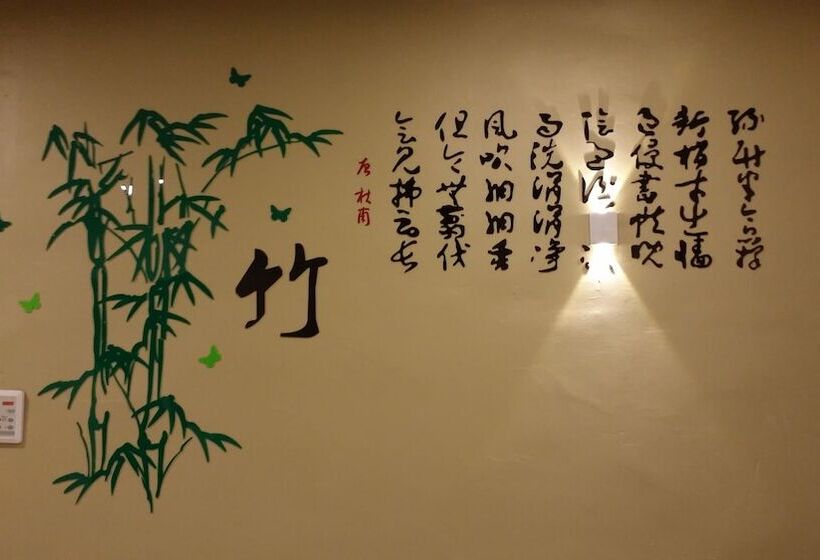 绿竹半含箨
新梢才出墙
色侵書帙晚
阴过酒凉
雨洗涓涓净
风吹细细香
但令無翦伐
会见拂云长
唐 杜甫
竹